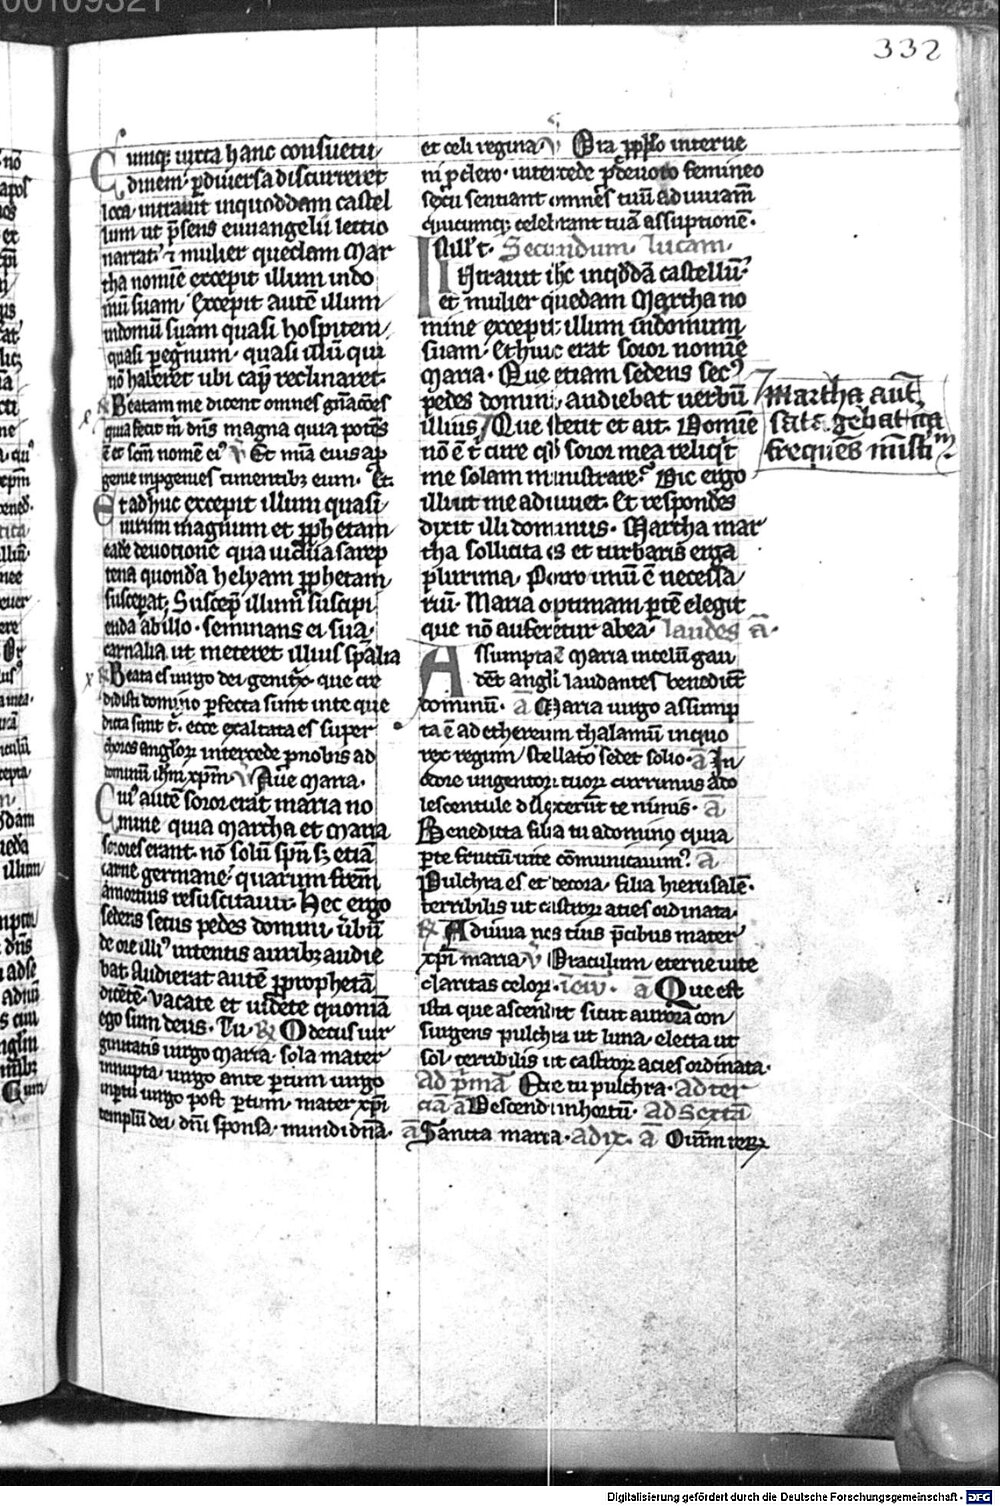 332
Cumq; iuxta hanc consuetu
dinem p̄ diuersa discurreret
loca, intrauit in quoddam castel
lum ut p̄sens euuangelii lectio
narrat, ⁊ mulier quedam Mar
tha nomīe excepit illum in do
mū suam. Excepit autē illum
in domū suam quasi hospitem
quasi peg̃num, quasi illū qui
nō haberet ubi cap̄ reclinaret.
℟ Beatam me dicent omnes gñac̄oes
quia fecit m̄ dn̄s magna quia potēs
ē et sc̄m nomē eiꝰ ℣ Et mīa eius a p̄
genie in p̄genies timentibz eum. Et
Et adhuc excepit illum quasi
uirum magnum et pp̄hetam
eadē deuotione qua uidua sarep
tena quonda helyam pp̄hetam
susceꝑat, Suscep̄ illum suscipi
enda ab illo. seminans ei sua
carnalia ut meteret illius sp̄alia
℟ Beata es uirgo dei genit̄x que cre
didisti domino ꝑfecta sunt in te que
dicta sunt t̄. ecce exaltata es super
choros angl̄oꝝ intercede p̄ nobis ad
dominū ih̄m xp̄m ℣ Aue Maria.
Cuiꝰ autē soror erat maria no
mine quia Martha et Maria
sorores erant. nō solū sp̄u sꝫ etiā
carne germane, quarum fr̄em
a mortuis resuscitauit. Hec ergo
sedens secus pedes domini, ūbū
de ore illiꝰ intentis auribz audie
bat. Audierat autē p̄ prophetā
dicētē. vacate et uidete quoniā
ego sum deus. Tu. ℟ O decus uir
ginitatis uirgo Maria. sola mater
innupta, uirgo ante ꝑtum uirgo
in ꝑtu uirgo post ꝑtum, mater xp̄i
templū dei, dn̄i sponsa. mundi dn̄a.
et celi regina. ℣ Ora p̄ pplo interue
ni p̄ clero. intercede p̄ deuoto femineo
sexu sentiant omnes tuū adiuuam̄
quicumq; celebrant tuā assūptionē.
In ill' t. Secundum lucam.
Intrauit ih̄c in q̄ddā castellū.
et mulier quedam Martha no
mine excepit illum in domum
suam. Et huic erat soror nomīe
Maria. Que etiam sedens secꝰ
pedes domini, audiebat uerbū
illius / Que stetit et ait. Domīe
nō ē t̄ cure qđ soror mea reliq̄t
me solam ministrare? Dic ergo
illi ut me adiuuet. Et respondēs
dixit illi dominus. Martha mar
tha sollicita es et turbaris erga
plurima, Porro unū ē necessa
riū. Maria optimam ꝑtē elegit
que nō auferetur ab ea. laudes ā.
Assumpta ē Maria in celū gau
dēt angli laudantes benedicūt
dominū. ā Maria uirgo assump
ta ē ad ethereum thalamū in quo
rex regum stellato sedet solio. ā In
odore ungentoꝝ tuoꝝ currimus ado
lescentule dilexerūt te nimis. ā
Benedicta filia tu a domino quia
ꝑ te fructū uite cōmunicauimꝰ. ā
Pulchra es et decora, filia hierusalē.
terribilis ut castroꝝ acies ordinata.
℟ Adiuua nos tuis p̄cibus mater
xp̄i maria ℣ Oraculum eterne uite
claritas celoꝝ. ā Que est
ista que ascendit sicut aurora con
surgens pulchra ut luna, electa ut
sol, terribilis ut castroꝝ acies ordinata.
Ad p̄mā Ecce tu pulchra. Ad ter
ciā ā Descendi in hortū. Ad Sextā
ā Sancta maria. Ad ix. ā
/ Martha aut̄
satagebat cica
frequēs mīst̄m.
Digitalisierung gefördert durch die Deutsche Forschungsgemeinschaft - DFG